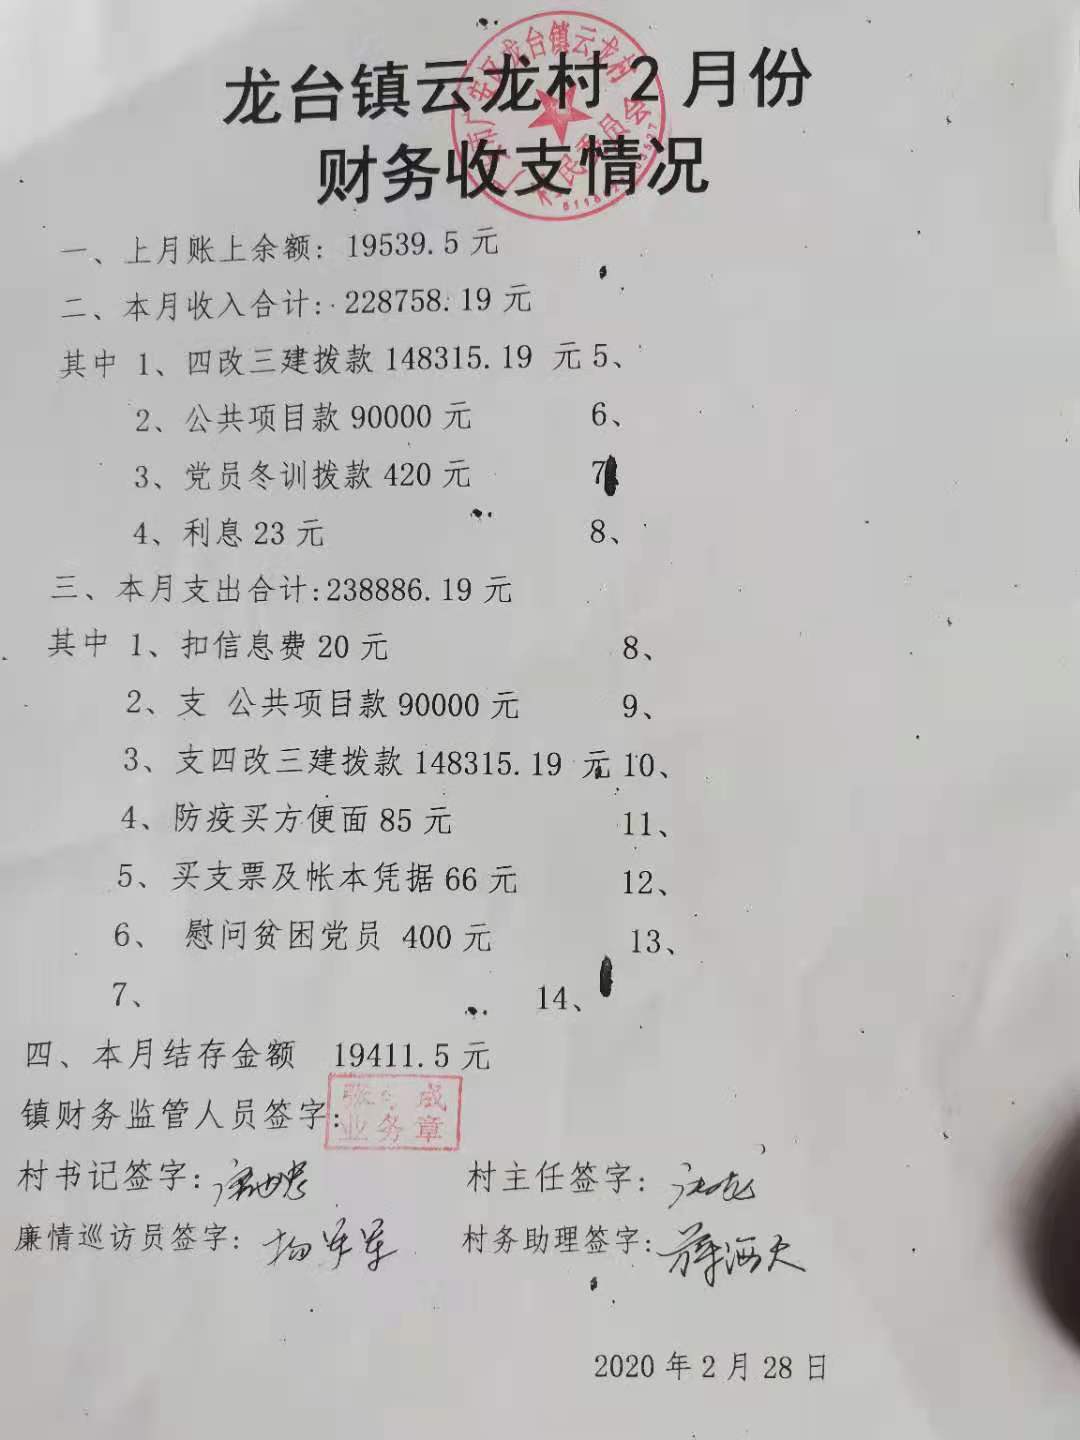 龙台镇云龙村2月份
财务收支情况
一、上月账上余额：19539.5元
二、本月收入合计：228758.19元
其中 1、四改三建拨款148315.19 元 5、
2、公共项目款90000元 6、
3、党员冬训拨款420元 7
4、利息23元 8、
三、本月支出合计:238886.19元
其中 1、扣信息费20元 8、
2、支 公共项目款90000元 9、
3、支四改三建拨款148315.19 元 10、
4、防疫买方便面85元 11、
5、买支票及帐本凭据66元 12、
6、 慰问贫困党员 400元 13、
7、 14、
四、本月结存金额 19411.5元
镇财务监管人员签字:
张 成
业务章
村书记签字: 村主任签字:
廉情巡访员签字: 杨军军 村务助理签字:
2020年2月28日